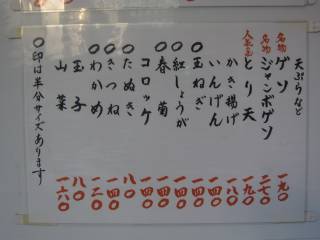 天ぷらなど
名物 ゲソ 一九〇
名物 ジャンボゲソ 二七〇
人気 とり天 一九〇
かき揚げ 一八〇
いんげん 一四〇
〇玉ねぎ 一四〇
〇紅しょうが 一四〇
〇春菊 一四〇
コロッケ 一四〇
〇たぬき 八〇
〇きつね 一四〇
〇わかめ 一二〇
玉子 八〇
山菜 一六〇
〇印は半分サイズあります